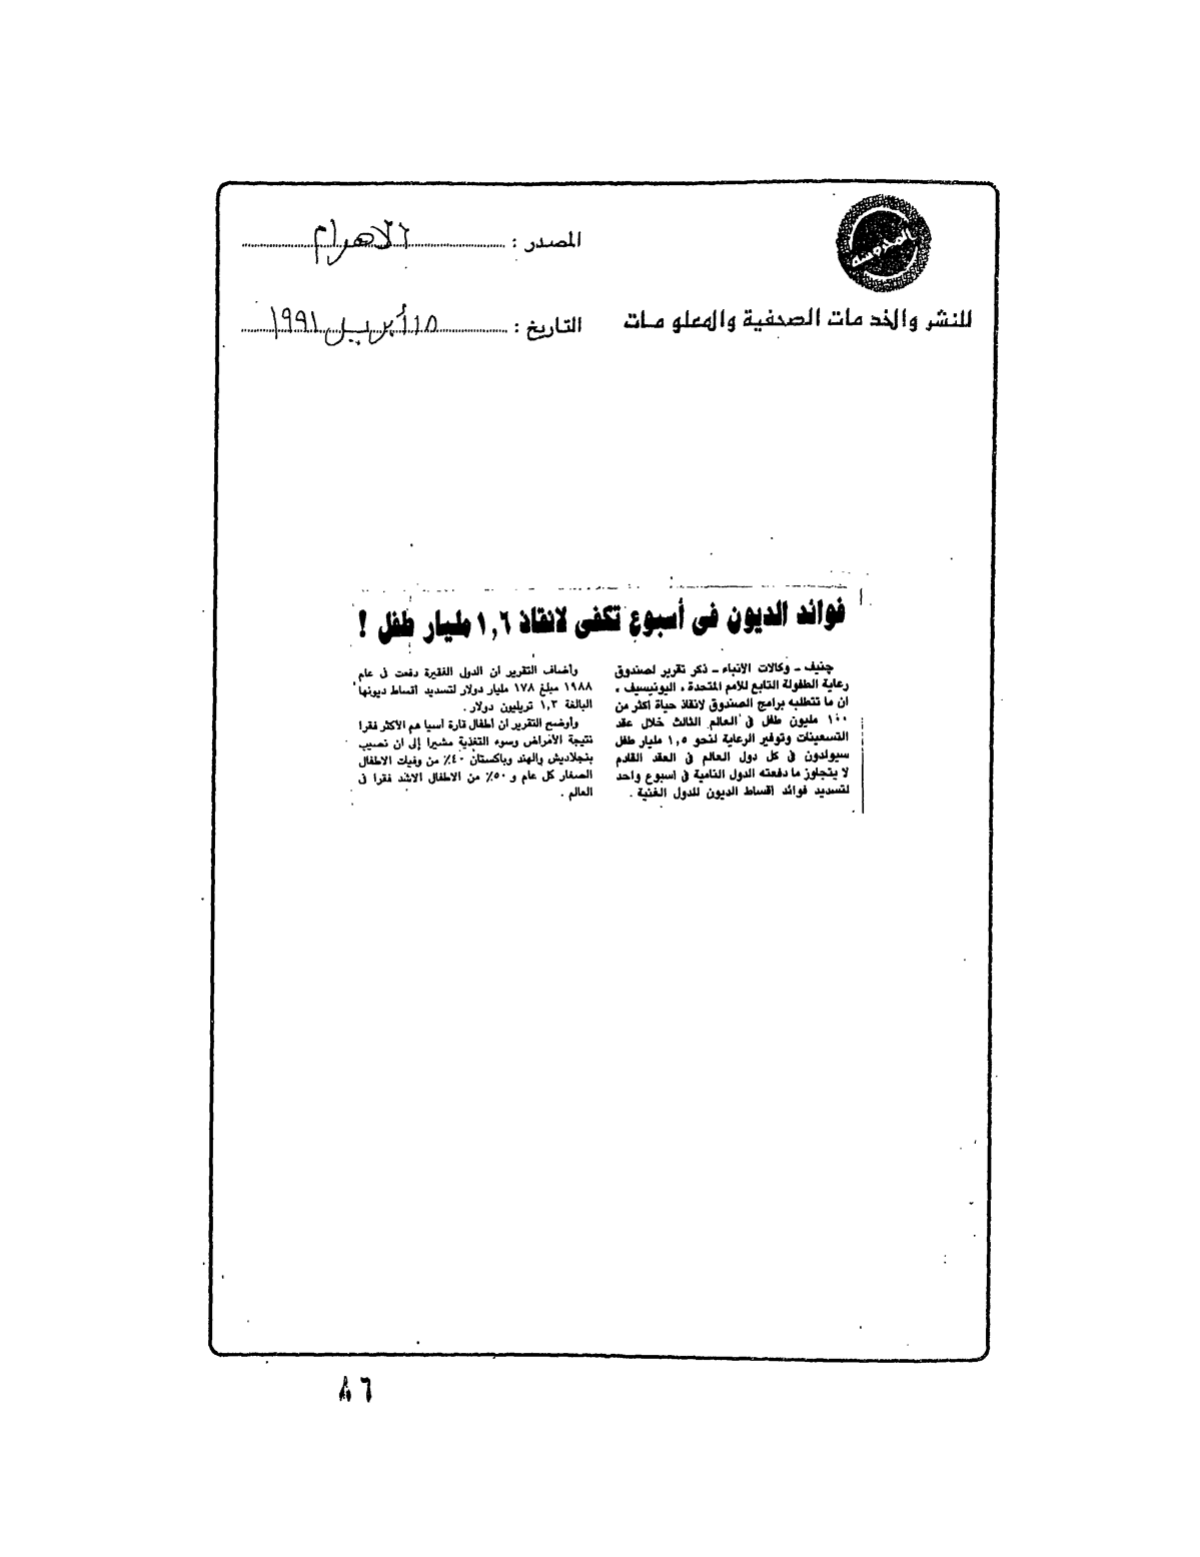 المحروسة
للنشر والخدمات الصحفية والمعلومات
المصدر : الاهرام
التاريخ : ١٥ أبريل ١٩٩١
فوائد الديون فى أسبوع تكفى لانقاذ ١,٦ مليار طفل !
چنيف ـ وكالات الأنباء ـ ذكر تقرير لصندوق
رعاية الطفولة التابع للأمم المتحدة ، اليونيسيف ،
ان ما تتطلبه برامج الصندوق لانقاذ حياة أكثر من
١٠٠ مليون طفل فى العالم الثالث خلال عقد
التسعينات وتوفير الرعاية لنحو ١,٥ مليار طفل
سيولدون فى كل دول العالم فى العقد القادم
لا يتجاوز ما دفعته الدول النامية فى أسبوع واحد
لتسديد فوائد أقساط الديون للدول الغنية .
وأضاف التقرير ان الدول الفقيرة دفعت فى عام
١٩٨٨ مبلغ ١٧٨ مليار دولار لتسديد أقساط ديونها
البالغة ١,٣ تريليون دولار .
وأوضح التقرير ان أطفال قارة أسيا هم الأكثر فقرا
نتيجة الأمراض وسوء التغذية مشيرا إلى ان نصيب
بنجلاديش والهند وباكستان ٤٠٪ من وفيات الاطفال
الصغار كل عام و ٥٠٪ من الاطفال الاشد فقرا فى
العالم .
٨٦